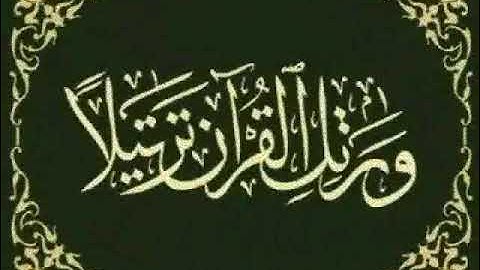 ورتل ٱلقرآن ترتيلاً